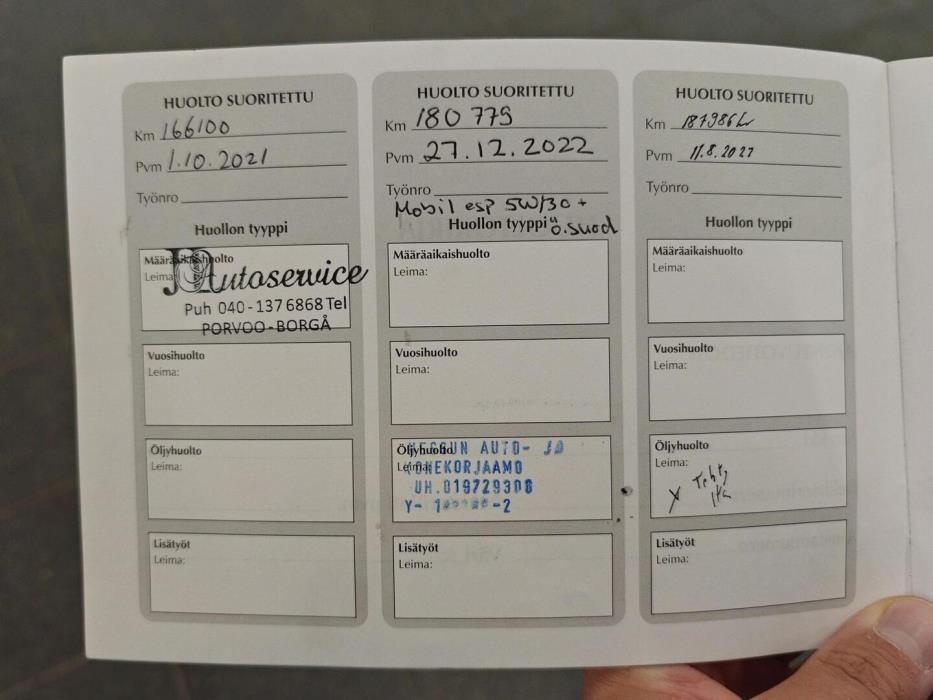 HUOLTO SUORITETTU
Km 166100
Pvm 1.10.2021
Työnro
Huollon tyyppi
Määräaikaishuolto
Leima:
Autoservice
Puh 040-137 6868 Tel
PORVOO-BORGÅ
Vuosihuolto
Leima:
Öljyhuolto
Leima:
Lisätyöt
Leima:
HUOLTO SUORITETTU
Km 180 779
Pvm 27.12.2022
Työnro
Mobil esp 5W/30 +
ö.suod
Huollon tyyppi
Määräaikaishuolto
Leima:
Vuosihuolto
Leima:
Öljyhuolto
Leima:
AUTO- JA
KONEKORJAAMO
UH.019729308
Lisätyöt
Leima:
HUOLTO SUORITETTU
Km
Pvm
Työnro
Huollon tyyppi
Määräaikaishuolto
Leima:
Vuosihuolto
Leima:
Öljyhuolto
Leima:
X Tehty
Lisätyöt
Leima: